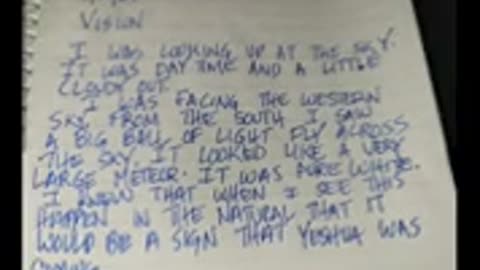 VISION
I WAS LOOKING UP AT THE SKY.
IT WAS DAY TIME AND A LITTLE
CLOUDY OUT.
I WAS FACING THE WESTERN
SKY. FROM THE SOUTH I SAW
A BIG BALL OF LIGHT FLY ACROSS
THE SKY. IT LOOKED LIKE A VERY
LARGE METEOR. IT WAS PURE WHITE.
I KNEW THAT WHEN I SEE THIS
HAPPEN IN THE NATURAL THAT IT
WOULD BE A SIGN THAT YESHUA WAS
COMING